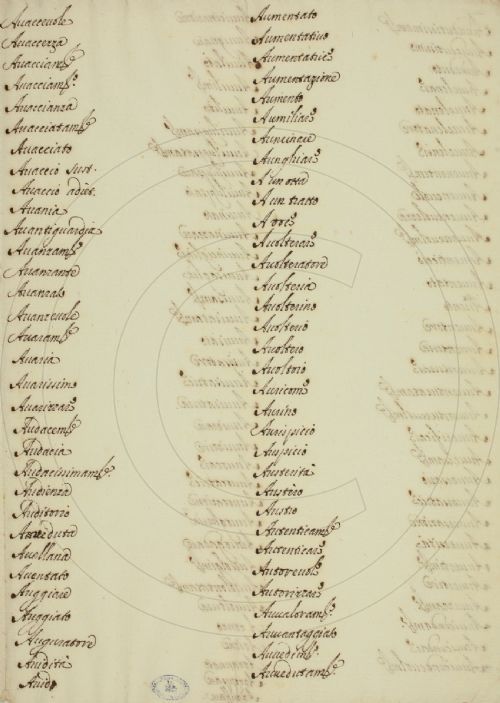 Auaccevole
Auaccezza
Auacciam.te
Auacciam.to
Auaccianza
Auacciatam.te
Auacciato
Auaccio sust.
Auaccio adiet.
Auania
Auantiguardia
Auanzam.to
Auanzante
Auanzato
Auanzevole
Auaram.te
Auaria
Auarissimo
Audacem.te
Audacia
Audacissimam.te
Audienza
Auditorio
Aueduta
Auellana
Auentato
Auggiare
Auggiato
Auguratore
Auidità
Auido
Aumentato
Aumentativo
Aumentatrice
Aumentazione
Aumento
Aumiliare
Auncinare
Aunghiare
A un'otta
A un tratto
Auolterare
Auolteratore
Auolteria
Auolterino
Auolterio
Auoltero
Auoltoio
Auricome
Aurino
Auruspicio
Auspicio
Austerità
Austero
Austro
Autenticam.te
Autenticare
Autorevole
Autorizzare
Auualoram.to
Auuantaggiato
Auuedim.to
Auuedutam.te